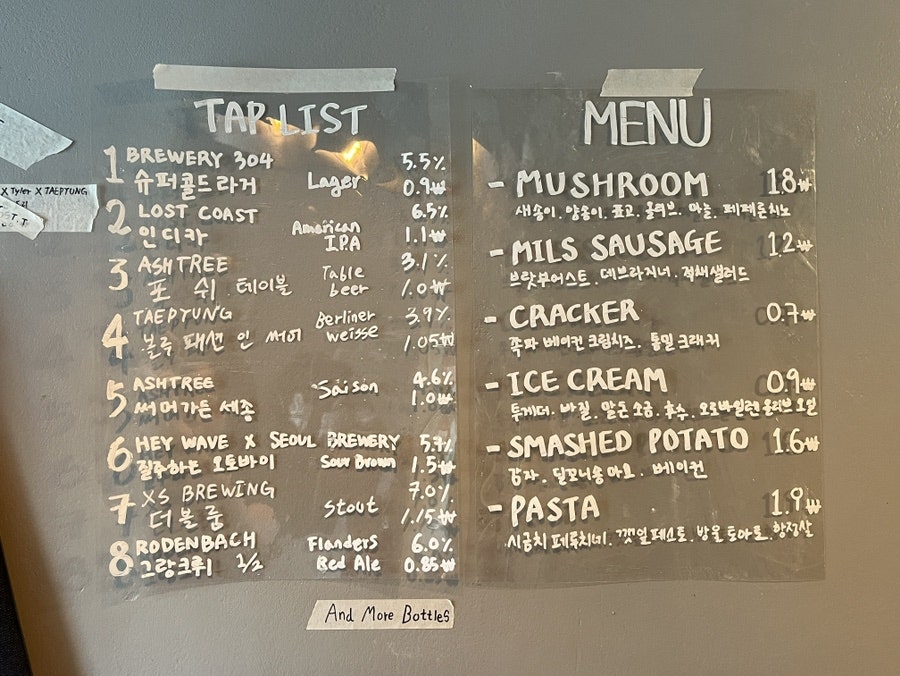 TAP LIST
1 BREWERY 304 5.5%
슈퍼콜드라거 Lager 0.9₩
2 LOST COAST 6.5%
인디카 American IPA 1.1₩
3 ASHTREE Table beer 3.1%
포 쉬 테이블 1.0₩
4 TAEPYUNG Berliner weisse 3.9%
블루 패션 인 써머 1.05₩
5 ASHTREE Saison 4.6%
써머가든 세종 1.0₩
6 HEY WAVE X SEOUL BREWERY 5.7%
질주하는 오토바이 Sour Brown 1.5₩
7 XS BREWING 7.0%
더블룸 Stout 1.15₩
8 RODENBACH Flanders 6.0%
그랑크뤼 1/2 Red Ale 0.85₩
And More Bottles
MENU
- MUSHROOM 1.8₩
새송이. 양송이. 표고. 올리브. 마늘. 페페론치노
- MILS SAUSAGE 1.2₩
브랏부어스트. 데브라지너. 적채샐러드
- CRACKER 0.7₩
쪽파 베이컨 크림치즈. 통밀 크래커
- ICE CREAM 0.9₩
투게더. 바질. 말돈 소금. 후추. 엑스트라버진 올리브 오일
- SMASHED POTATO 1.6₩
감자. 딜꼬니숑마요. 베이컨
- PASTA 1.9₩
시금치 페투치네. 깻잎페스토. 방울토마토. 항정살
X Tyler X TAEPYUNG